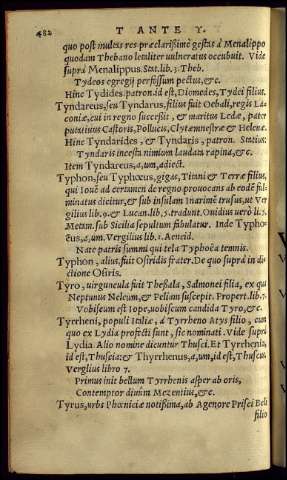 482 T ANTE Y.
quo post multas res præclarissimè gestas à Menalippo
quodam Thebano leniter vulneratus occubuit. Vide
suprà Menalippus. Stat. lib. 3. Theb.
Tydeos egregij perfossum pectus, &c.
Hinc Tydides patron. id est, Diomedes, Tydei filius.
Tyndareus, seu Tyndarus, filius fuit Oebali, regis La-
coniæ, cui in regno successit, & maritus Ledæ, pater
putatiuus Castoris, Pollucis, Clytæmnestræ & Helenæ.
Hinc Tyndarides, & Tyndaris, patron. Statius:
Tyndaris incesta nimium laudata rapina, &c.
Item Tyndareus, a, um, adiect.
Typhon, seu Typhœus, gigas, Titani & Terræ filius,
qui Iouē ad certamen de regno prouocans ab eodē ful-
minatus dicitur, & sub insulam Inarimē trusus, ut Ver
gilius lib. 9. & Lucan. lib. 5. tradunt. Ouidius uerò li. 5.
Metam. sub Sicilia sepultum fabulatur. Inde Typho-
ëus, a, um. Vergilius lib. 1. Aeneid.
Nate patris summi qui tela Typhoëa temnis.
Typhon, alius, fuit Osiridis frater. De quo suprà in di-
ctione Osiris.
Tyro, uirguncula fuit Thessala, Salmonei filia, ex qua
Neptunus Neleum, & Peliam suscepit. Propert. lib. 7.
Vobiscum est Iope, uobiscum candida Tyro, &c.
Tyrrheni, populi Italiæ, à Tyrrheno Atys filio, cum
quo ex Lydia profecti sunt, sic nominati. Vide suprà
Lydia. Alio nomine dicuntur Thusci. Et Tyrrhenia,
id est, Thuscia: & Thyrrhenus, a, um, id est, Thuscus.
Verglius libro 7.
Primus init bellum Tyrrhenis asper ab oris,
Contemptor diuûm Mezentius, &c.
Tyrus, urbs Phœniciæ notissima, ab Agenore Prisci Beli
filio